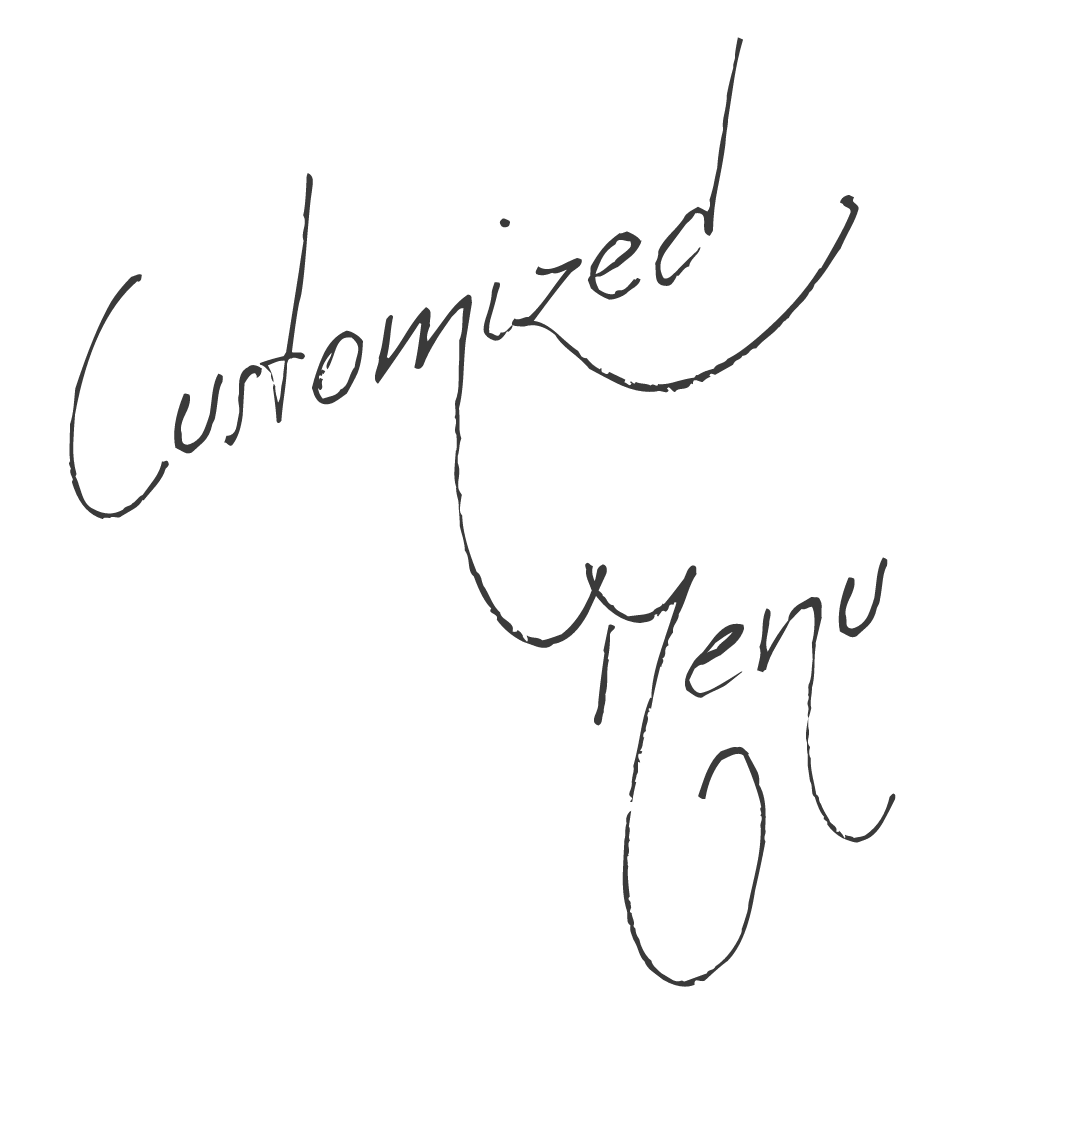 Customized
Menu